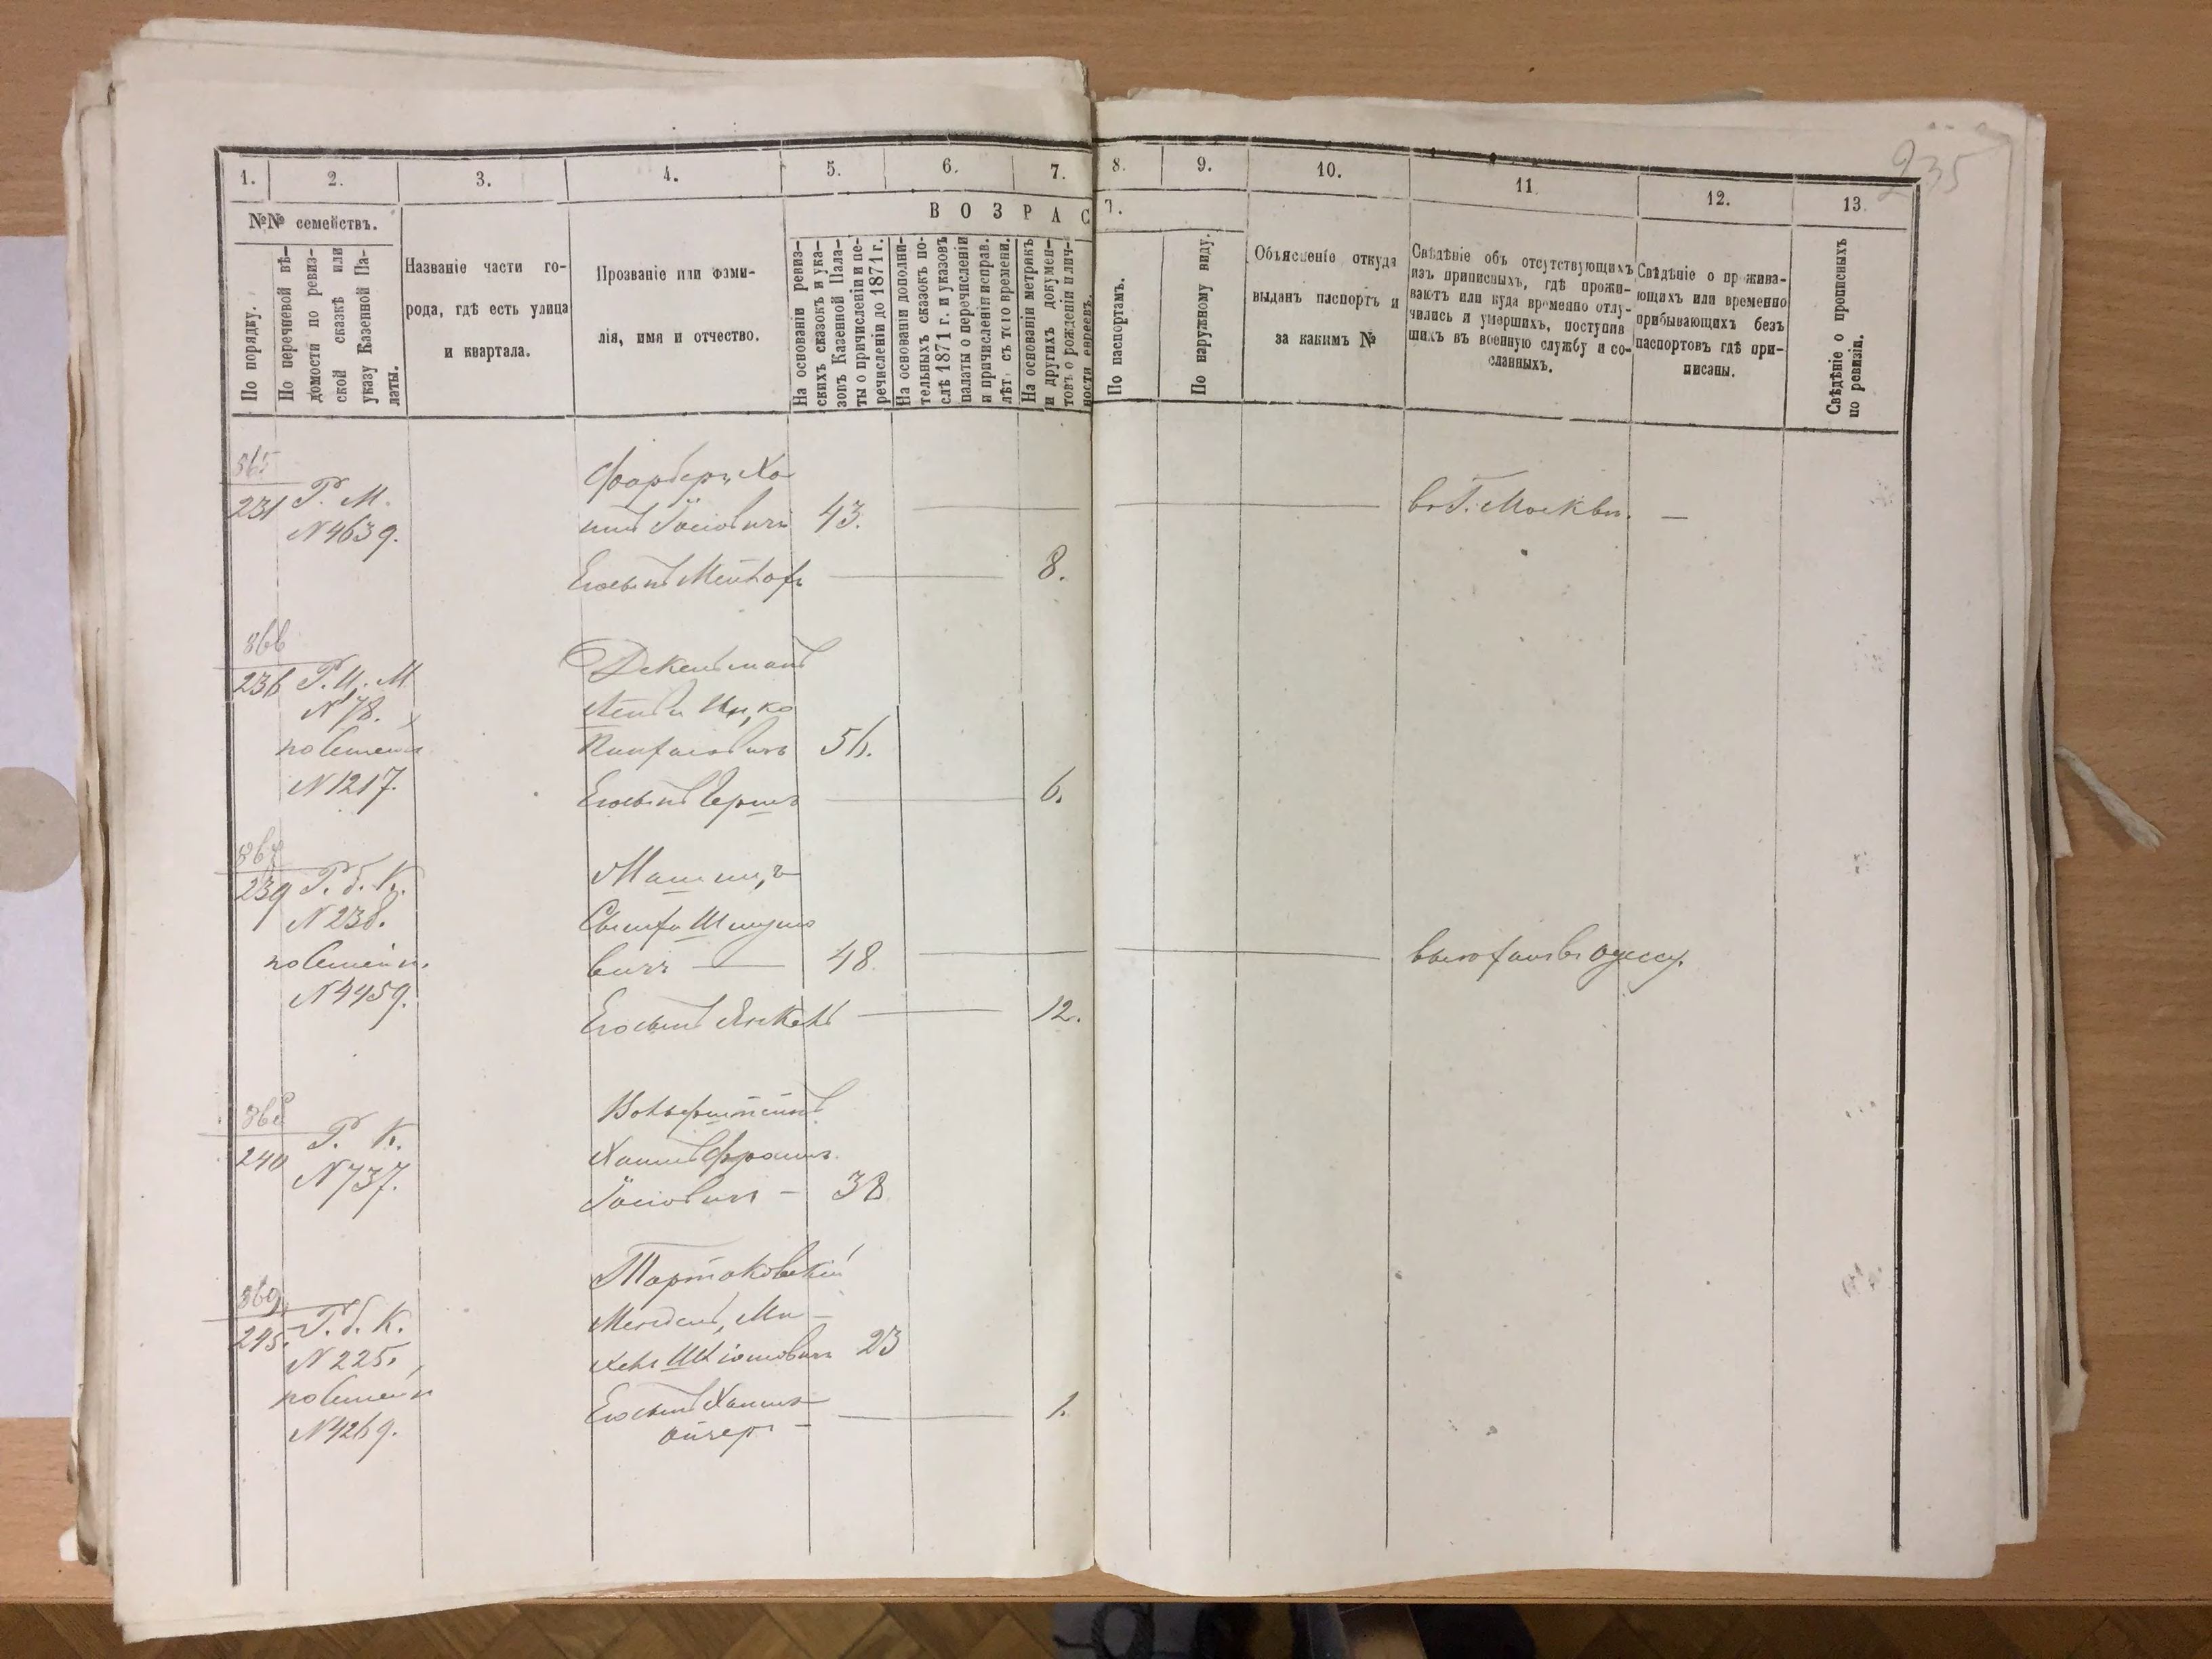 235
1. 2. 3. 4. 5. 6. 7. 8. 9. 10. 11. 12. 13.
№№ семействъ.
По порядку.
По перечневой вѣ-
домости по ревиз-
ской сказкѣ или
указу Казенной Па-
латы.
Названіе части го-
рода, гдѣ есть улица
и квартала.
Прозваніе или фами-
лія, имя и отчество.
ВОЗРАСТ.
На основаніи ревиз-
скихъ сказокъ и ука-
зовъ Казенной Пала-
ты о причисленіи и пе-
речисленіи до 1871 г.
На основаніи дополни-
тельныхъ сказокъ по-
слѣ 1871 г. и указовъ
палаты о перечисленіи
и причисленіи исправ.
лѣт. съ того времени.
На основаніи метрикъ
и другихъ докумен-
товъ о рожденіи и лич-
ности евреевъ.
По паспортамъ.
По наружному виду.
Объясненіе откуда
выданъ паспортъ и
за какимъ №
Свѣдѣніе объ отсутствующихъ
изъ приписныхъ, гдѣ прожи-
ваютъ или куда временно отлу-
чились и умершихъ, поступив
шихъ въ военную службу и со-
сланныхъ.
Свѣдѣніе о прожива-
ющихъ или временно
прибывающихъ безъ
паспортовъ гдѣ при-
писаны.
Свѣдѣніе о прописныхъ
по ревизіи.
865
231 Р. М.
N 4639.
Фарберъ Ха
имъ Іосіовичъ 43. въ Г. Москвѣ. —
Егосынъ Мейлахъ 8.
866
236 Р. И. М.
N 78.
N 1217.
56.
Егосынъ Гершъ 6.
867
239 Р. б. К.
N 238.
N 4459.
Шмуло
вичъ — 48
въ Одессу.
Егосынъ Янкель 12.
868
240 Р. К.
N 737.
Хаимъ Фроимъ
Іосіовичъ — 38
869
245. Р. б. К.
N 225.
N 4269.
Тартаковскій
Мендель, Ми-
хель 23
Егосынъ Хаимъ 1.